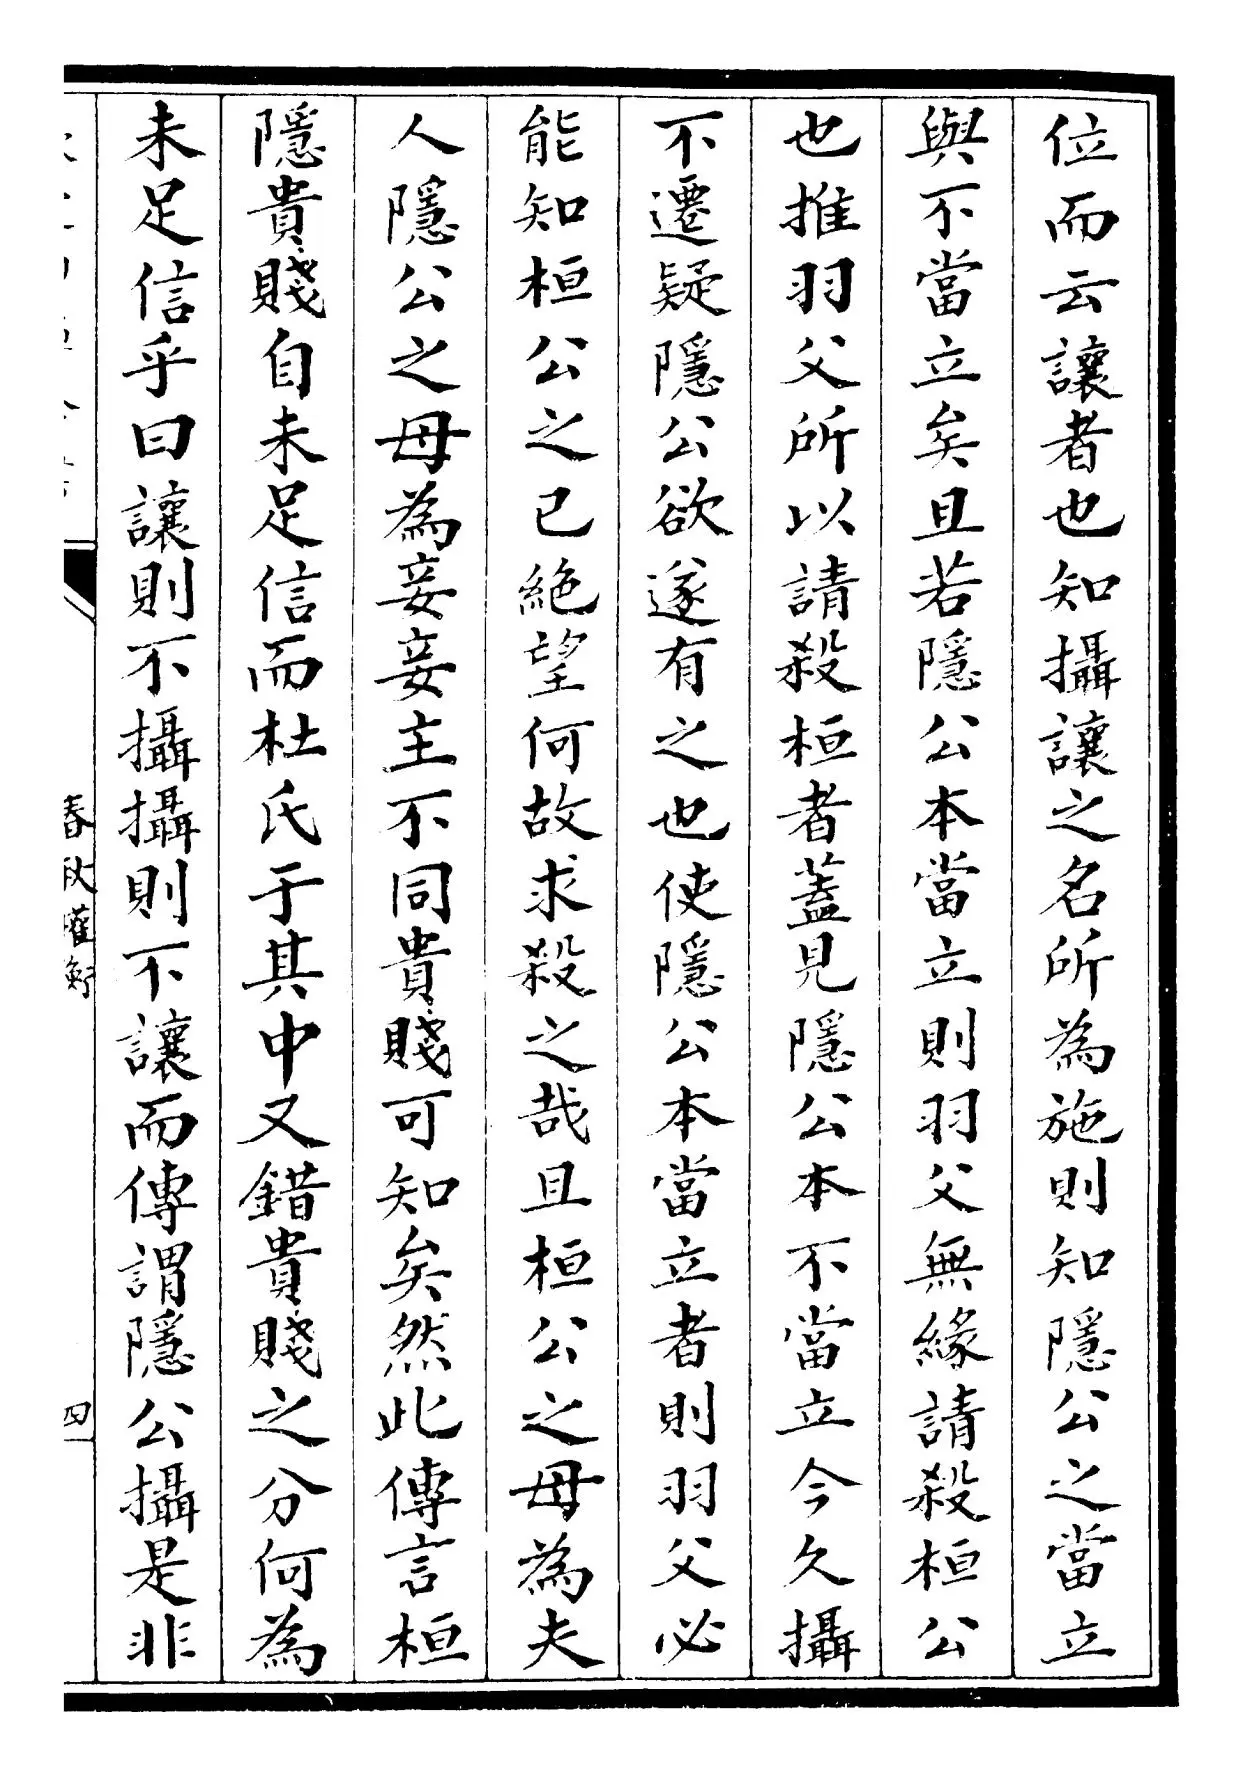 位而云讓者也知攝讓之名所為施則知隱公之當立
與不當立矣且若隱公本當立則羽父無緣請殺桓公
也推羽父所以請殺桓者蓋見隱公本不當立今久攝
不遷疑隱公欲遂有之也使隱公本當立者則羽父必
能知桓公之已絶望何故求殺之哉且桓公之母為夫
人隱公之母為妾妾主不同貴賤可知矣然此傳言桓
隱貴賤自未足信而杜氏于其中又錯貴賤之分何為
未足信乎曰讓則不攝攝則不讓而傳謂隱公攝是非
春秋權衡
四